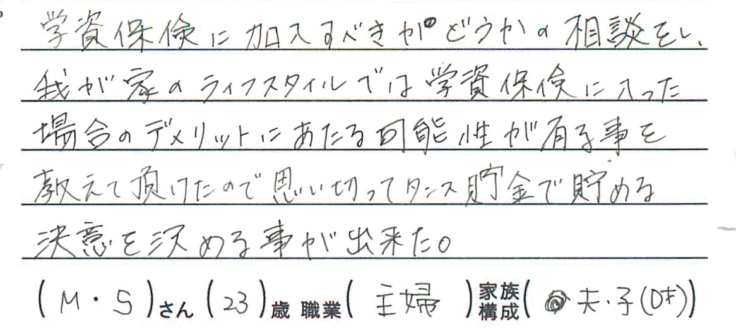 学資保険に加入すべきかどうかの相談をし、
我が家のライフスタイルでは学資保険に入った
場合のデメリットにあたる可能性が有る事を
教えて頂けたので思い切ってタンス貯金で貯める
決意を決める事が出来た。
(M・S)さん(23)歳 職業(主婦)家族構成(夫・子(0才))